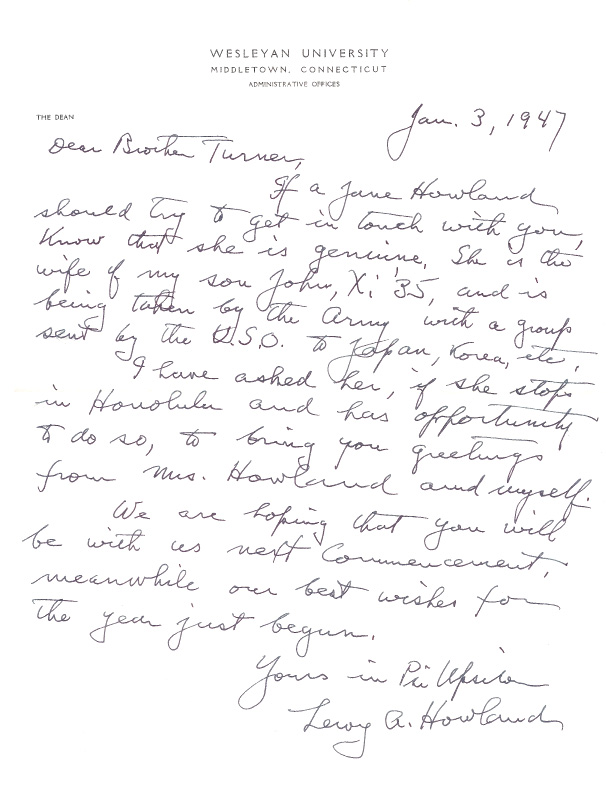 WESLEYAN UNIVERSITY
MIDDLETOWN, CONNECTICUT
ADMINISTRATIVE OFFICES
THE DEAN
Jan. 3, 1947
Dear Brother Turner,
If a Jane Howland
should try to get in touch with you,
know that she is genuine. She is the
wife of my son John, Xi '35, and is
being taken by the Army with a group
sent by the U.S.O. to Japan, Korea, etc.
I have asked her, if she stops
in Honolulu and has opportunity
to do so, to bring you greetings
from Mrs. Howland and myself.
We are hoping that you will
be with us next Commencement,
meanwhile our best wishes for
the year just begun.
Yours in Psi Upsilon
Leroy A. Howland